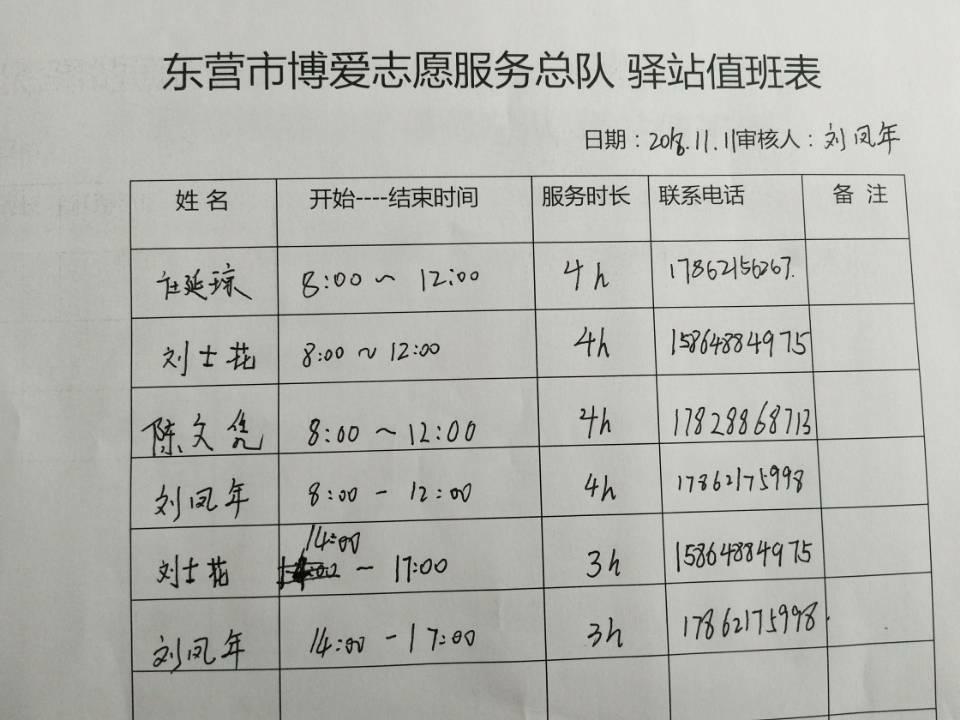 东营市博爱志愿服务总队 驿站值班表
日期：2018.11.11审核人：刘凤年
姓名 开始----结束时间 服务时长 联系电话 备 注
任延琼 8:00～12:00 4h 17862156267.
刘士花 8:00～12:00 4h 15864884975
陈文 8:00～12:00 4h 17828868713
刘凤年 8:00-12:00 4h 17862175998
刘士花 14:00～17:00 3h 15864884975
刘凤年 14:00-17:00 3h 17862175998.